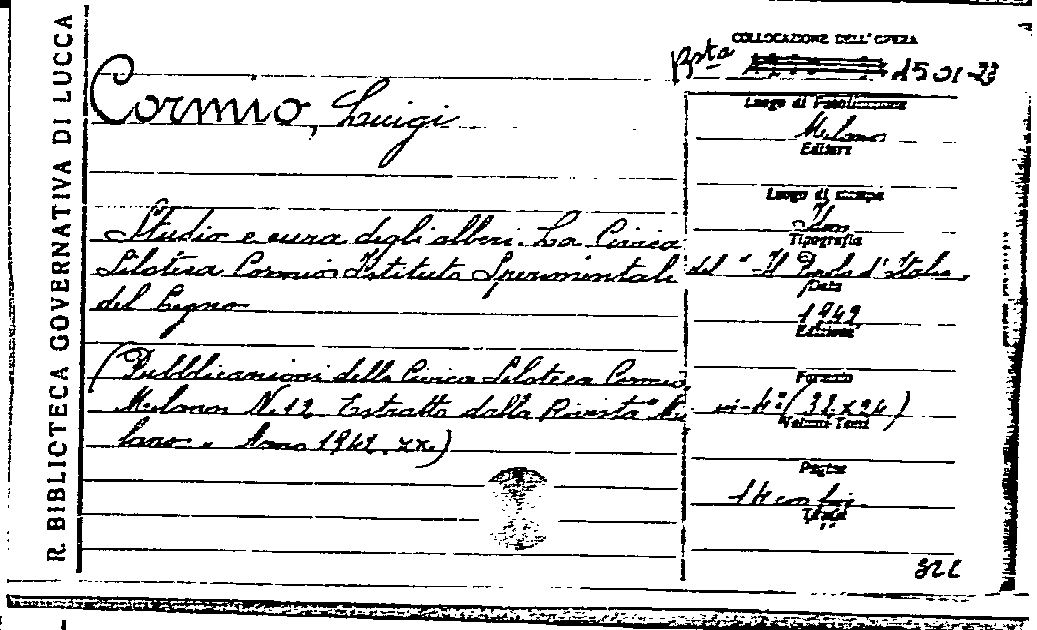 R. BIBLIOTECA GOVERNATIVA DI LUCCA
COLLOCAZIONE DELL'OPERA
Bsta 1501-23
Cormio, Luigi
Studio e cura degli alberi. La Civica
Siloteca Cormio Istituto Sperimentale
del Legno
(Pubblicazioni della Civica Siloteca Cormio
Milano N. 12 Estratto dalla Rivista "Mi
lano" Anno 1942. XX.)
Luogo di Pubblicazione
Milano
Editore
Luogo di stampa
Tipografia
del "Il Popolo d'Italia"
Data
1942
Edizione
Formato
in-4° (32x24)
Volumi Tomi
Pagine
14 con fig